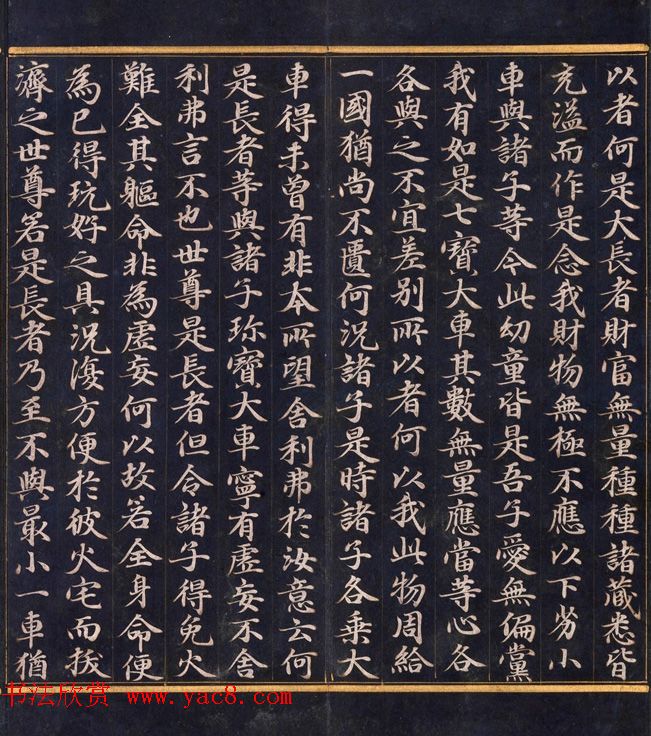 以者何是大長者財富無量種種諸藏悉皆
充溢而作是念我財物無極不應以下劣小
車與諸子等今此幼童皆是吾子愛無偏黨
我有如是七寶大車其數無量應當等心各
各與之不宜差别所以者何以我此物周給
一國猶尚不匱何況諸子是時諸子各乘大
車得未曾有非本所望舍利弗於汝意云何
是長者等與諸子珎寶大車寧有虛妄不舍
利弗言不也世尊是長者但令諸子得免火
難全其軀命非為虛妄何以故若全身命便
為已得玩好之具況復方便於彼火宅而拔
濟之世尊若是長者乃至不與最小一車猶
书法欣赏 www.yac8.com